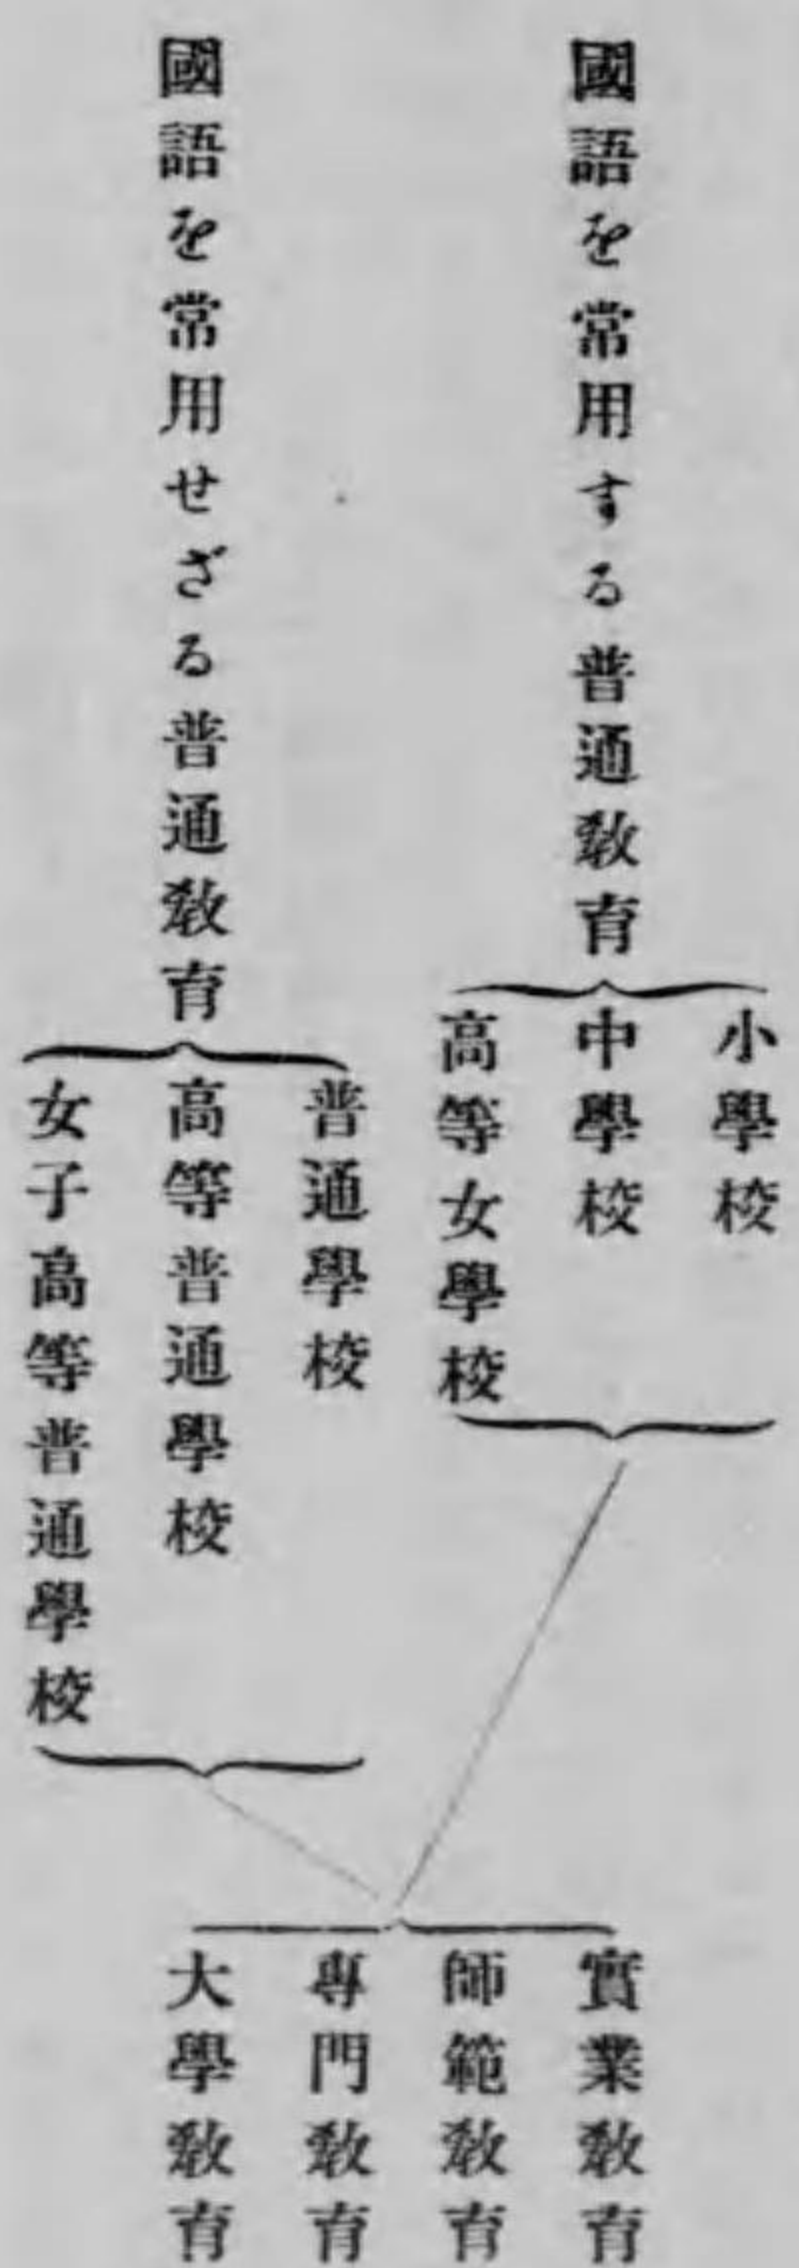 國語を常用する普通敎育
小學校
中學校
高等女學校
國語を常用せざる普通敎育
普通學校
高等普通學校
女子高等普通學校
實業敎育
師範敎育
專門敎育
大學敎育